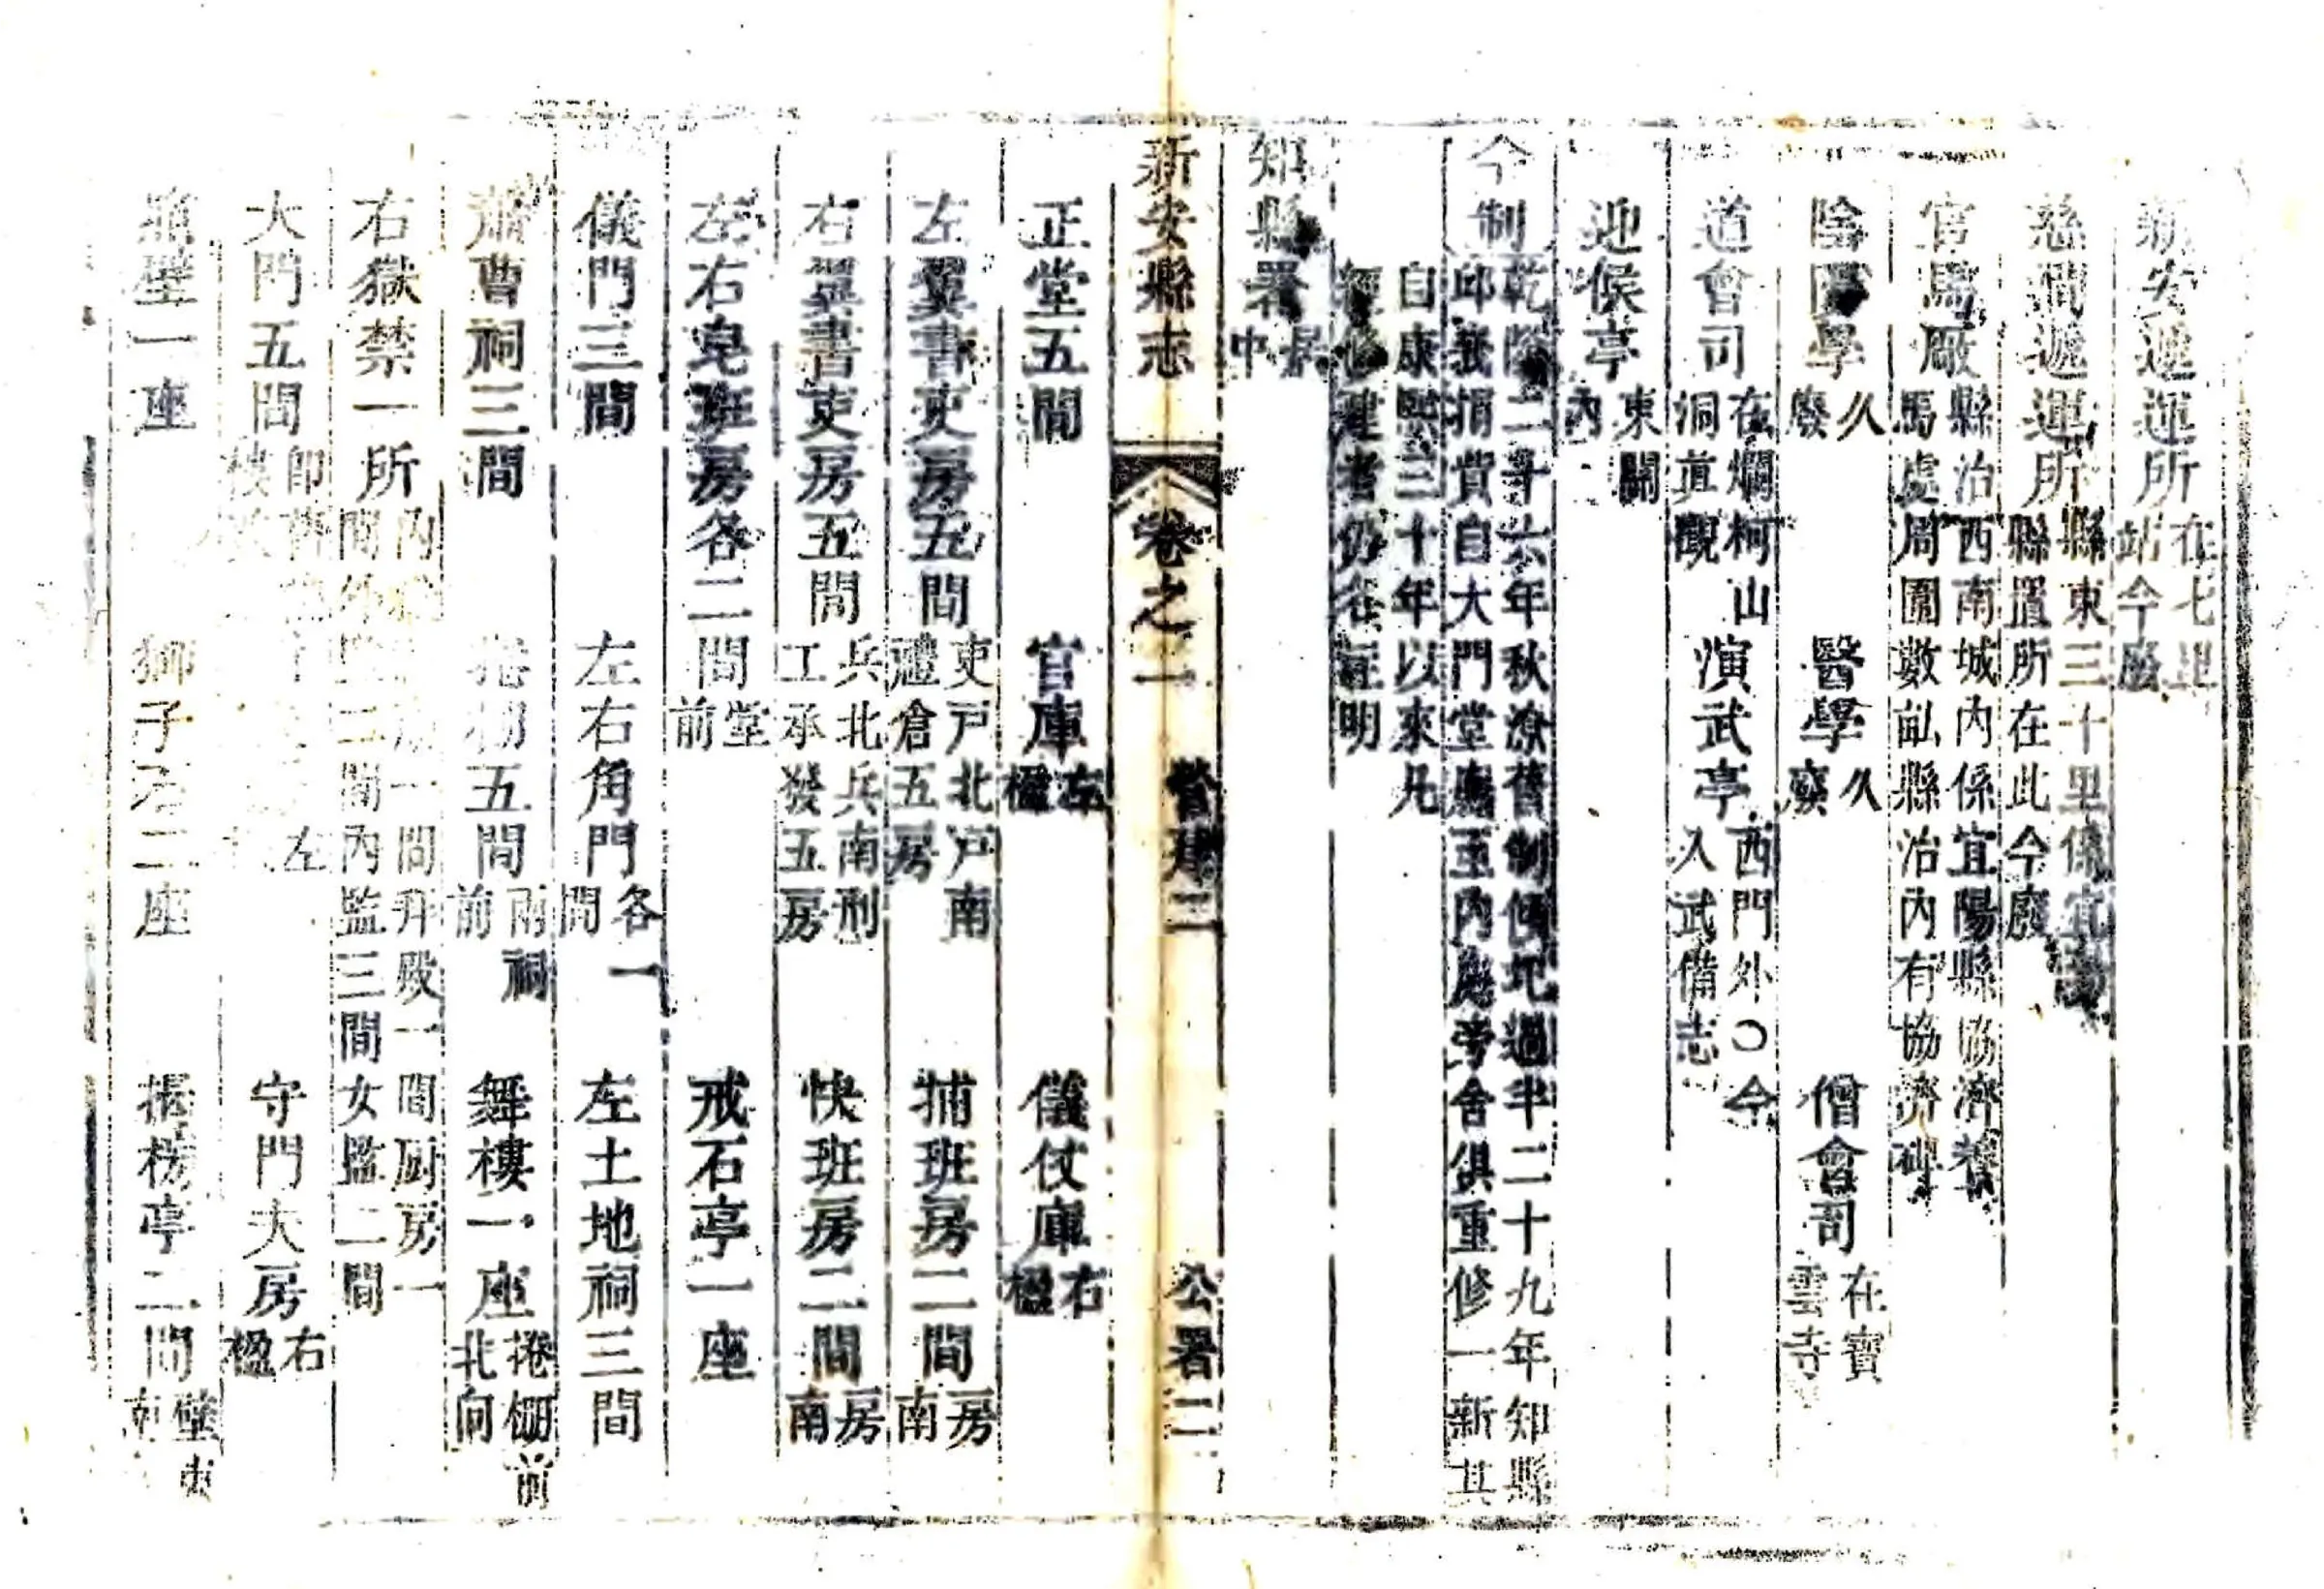 新安遞運所 在七里站今廢
慈澗遞運所 縣東三十里係宜陽縣置所在此今廢
官馬廠 縣治西南城內係宜陽縣協濟養馬處周圍數畝縣治內有協濟碑
陰陽學 久廢 醫學 久廢 僧會司 在寶雲寺
道會司 在爛柯山洞真觀 演武亭 西門外○今入武備志
迎候亭 東關內
今制 乾隆二十六年秋潦舊制傾圮過半二十九年知縣邱峩捐貲自大門堂廳至內廨旁舍俱重修一新其
自康熙三十年以來凡經修建者仍各註明
知縣署 居中
新安縣志 卷之二 營建二 公署二
正堂五間 官庫 左楹 儀仗庫 右楹
左翼書吏房五間 吏戸北戸南禮倉五房 捕班房二間 房南
右翼書吏房五間 兵北兵南刑工承發五房 快班房二間 房南
左右皂班房各二間 堂前 戒石亭一座
儀門三間 左右角門 各一間 左土地祠三間
蕭曹祠三間 捲棚五間 兩祠前 舞樓一座 捲棚前北向
右獄禁一所 內 一間升殿一間厨房一間外監二間內監三間女監二間
大門五間 即 樓 左 守門大房 右楹
照壁一座 獅子石二座 振榜亭二間 壁東南